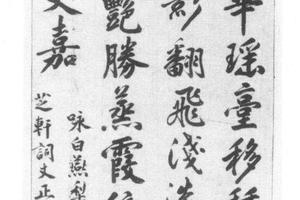 華瑶臺移種
影翻飛淺洗
艷勝蒸霞
文嘉
咏白燕梨
芝軒詞丈正